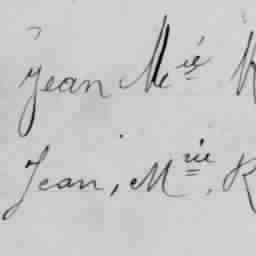 Jean Mié K
Jean, Mrie, R